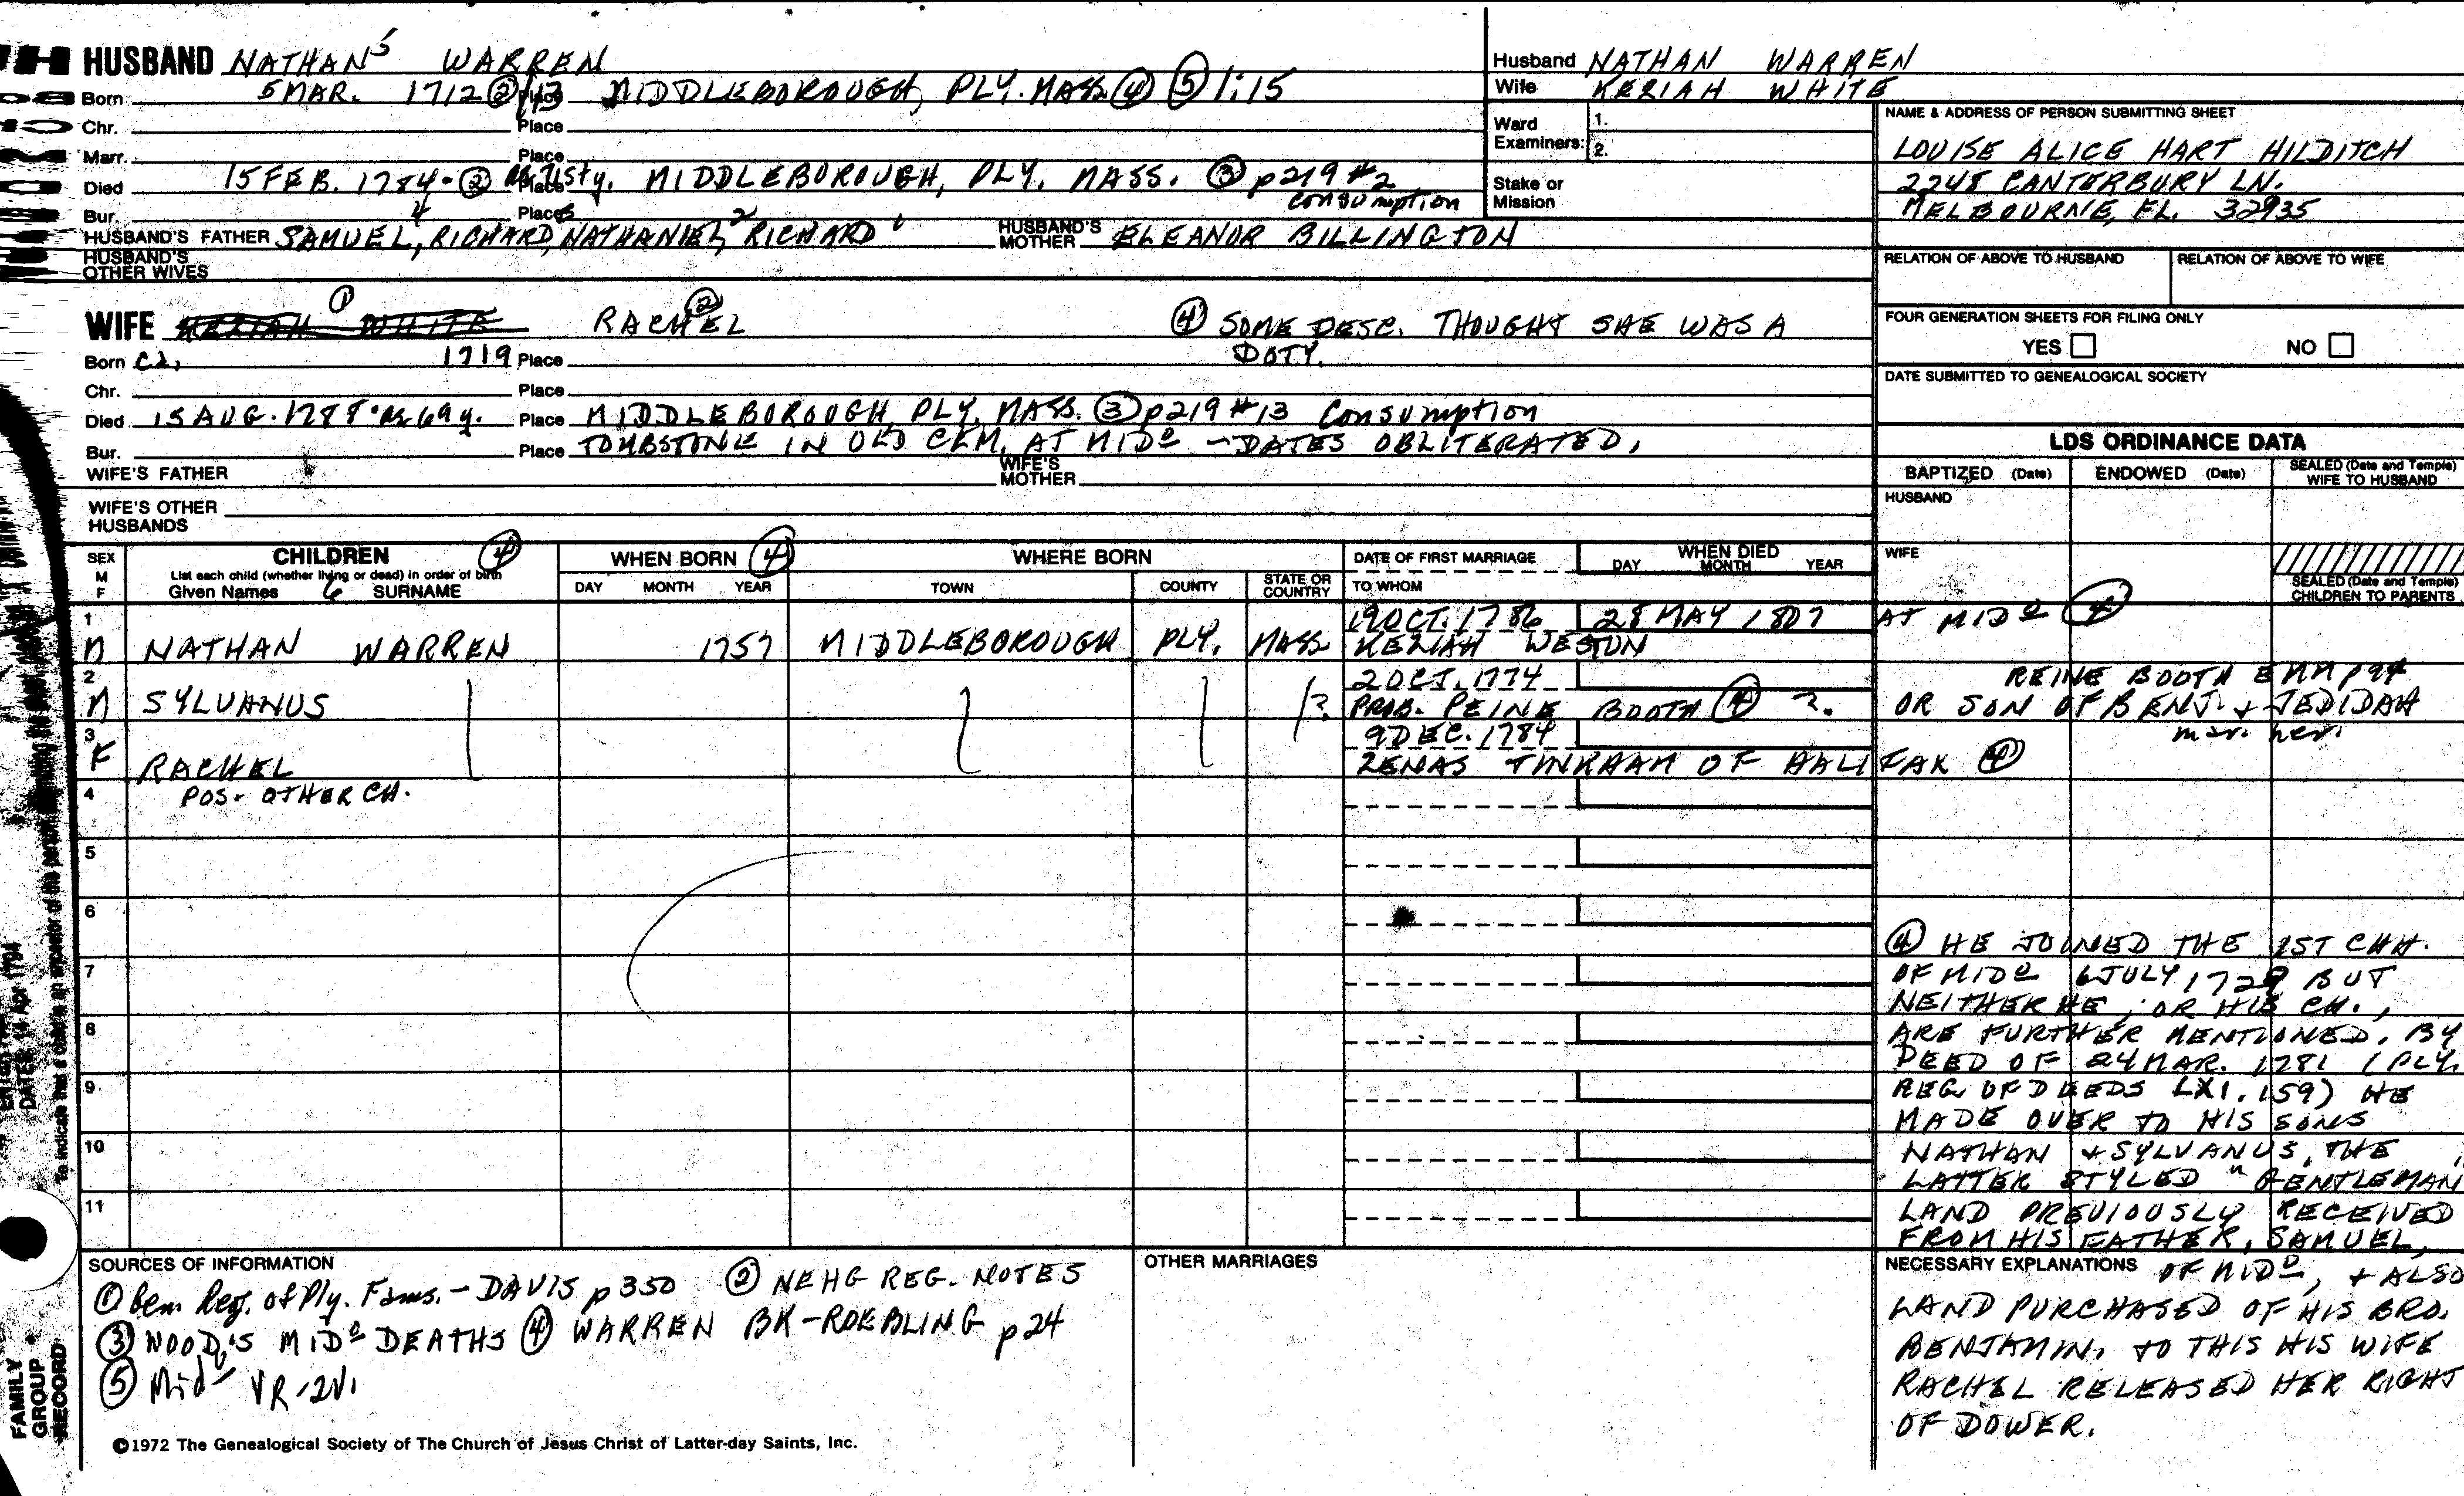 HUSBAND NATHAN5 WARREN
Born 5 MAR. 1712 ②/13 Place MIDDLEBOROUGH, PLY. MASS. ④ ⑤ 1:15
Chr. Place
Marr. Place
Died 15 FEB. 1784. ② Place MIDDLEBOROUGH, PLY. MASS. ③ p219 #2
consumption
Bur. Place
HUSBAND'S FATHER SAMUEL,4 RICHARD,3 NATHANIEL,2 RICHARD1 HUSBAND'S MOTHER ELEANOR BILLINGTON
HUSBAND'S OTHER WIVES
Husband NATHAN WARREN
Wife KERIAH WHITE
Ward Examiners: 1.
2.
Stake or Mission
NAME & ADDRESS OF PERSON SUBMITTING SHEET
LOUISE ALICE HART HILDITCH
2248 CANTERBURY LN.
MELBOURNE, FL. 32935
RELATION OF ABOVE TO HUSBAND RELATION OF ABOVE TO WIFE
FOUR GENERATION SHEETS FOR FILING ONLY
YES NO
DATE SUBMITTED TO GENEALOGICAL SOCIETY
WIFE KERIAH WHITE ① RACHEL ② ④ SOME DESC. THOUGHT SHE WAS A
DOTY.
Born Ca, 1719 Place
Chr. Place
Died 15 AUG. 1788 • ae 69 y. Place MIDDLEBOROUGH, PLY. MASS. ③ p219 #13 Consumption
Bur. Place TOMBSTONE IN OLD CEM. AT MIDº - DATES OBLITERATED,
WIFE'S FATHER WIFE'S MOTHER
WIFE'S OTHER HUSBANDS
LDS ORDINANCE DATA
BAPTIZED (Date) ENDOWED (Date) SEALED (Date and Temple) WIFE TO HUSBAND
HUSBAND
WIFE
SEALED (Date and Temple) CHILDREN TO PARENTS
SEX M F
CHILDREN ④
List each child (whether living or dead) in order of birth
Given Names 6 SURNAME
WHEN BORN ④
DAY MONTH YEAR
WHERE BORN
TOWN COUNTY STATE OR COUNTRY
DATE OF FIRST MARRIAGE
TO WHOM
WHEN DIED
DAY MONTH YEAR
1 19 OCT. 1786 28 MAY 1807 AT MIDº ④
M NATHAN WARREN 1757 MIDDLEBOROUGH PLY. MASS KEZIAH WESTON
2 2 OCT. 1774 REINE BOOTH p94
M SYLVANUS ? PROB. REINE BOOTH ④ ?. OR SON OF BENJ. + JEDIDAH
mar. her.
3 9 DEC. 1784
F RACHEL ZENAS TINKHAM OF HALIFAX ④
4 POS. OTHER CH.
5
6
7
8
9
10
11
④ HE JOINED THE 1ST CHH.
OF MIDº 6 JULY 1729 BUT
NEITHER HE, OR HIS CH.,
ARE FURTHER MENTIONED. BY
DEED OF 24 MAR. 1781 (PLY.
REG. OF DEEDS LXI. 159) HE
MADE OVER TO HIS SONS
NATHAN + SYLVANUS, THE
LATTER STYLED "GENTLEMAN"
LAND PREVIOUSLY RECEIVED
FROM HIS FATHER, SAMUEL,
NECESSARY EXPLANATIONS OF MIDº, + ALSO
LAND PURCHASED OF HIS BRO.
BENJAMIN. TO THIS HIS WIFE
RACHEL RELEASED HER RIGHT
OF DOWER.
SOURCES OF INFORMATION
① Gen. Reg. of Ply. Fams. - DAVIS p350 ② NEHG REG. NOTES
③ WOOD'S MIDº DEATHS ④ WARREN BK - ROEBLING p24
⑤ Midº VR - 2V.
OTHER MARRIAGES
©1972 The Genealogical Society of The Church of Jesus Christ of Latter-day Saints, Inc.
FAMILY GROUP RECORD
DATES 14 Apr 1794